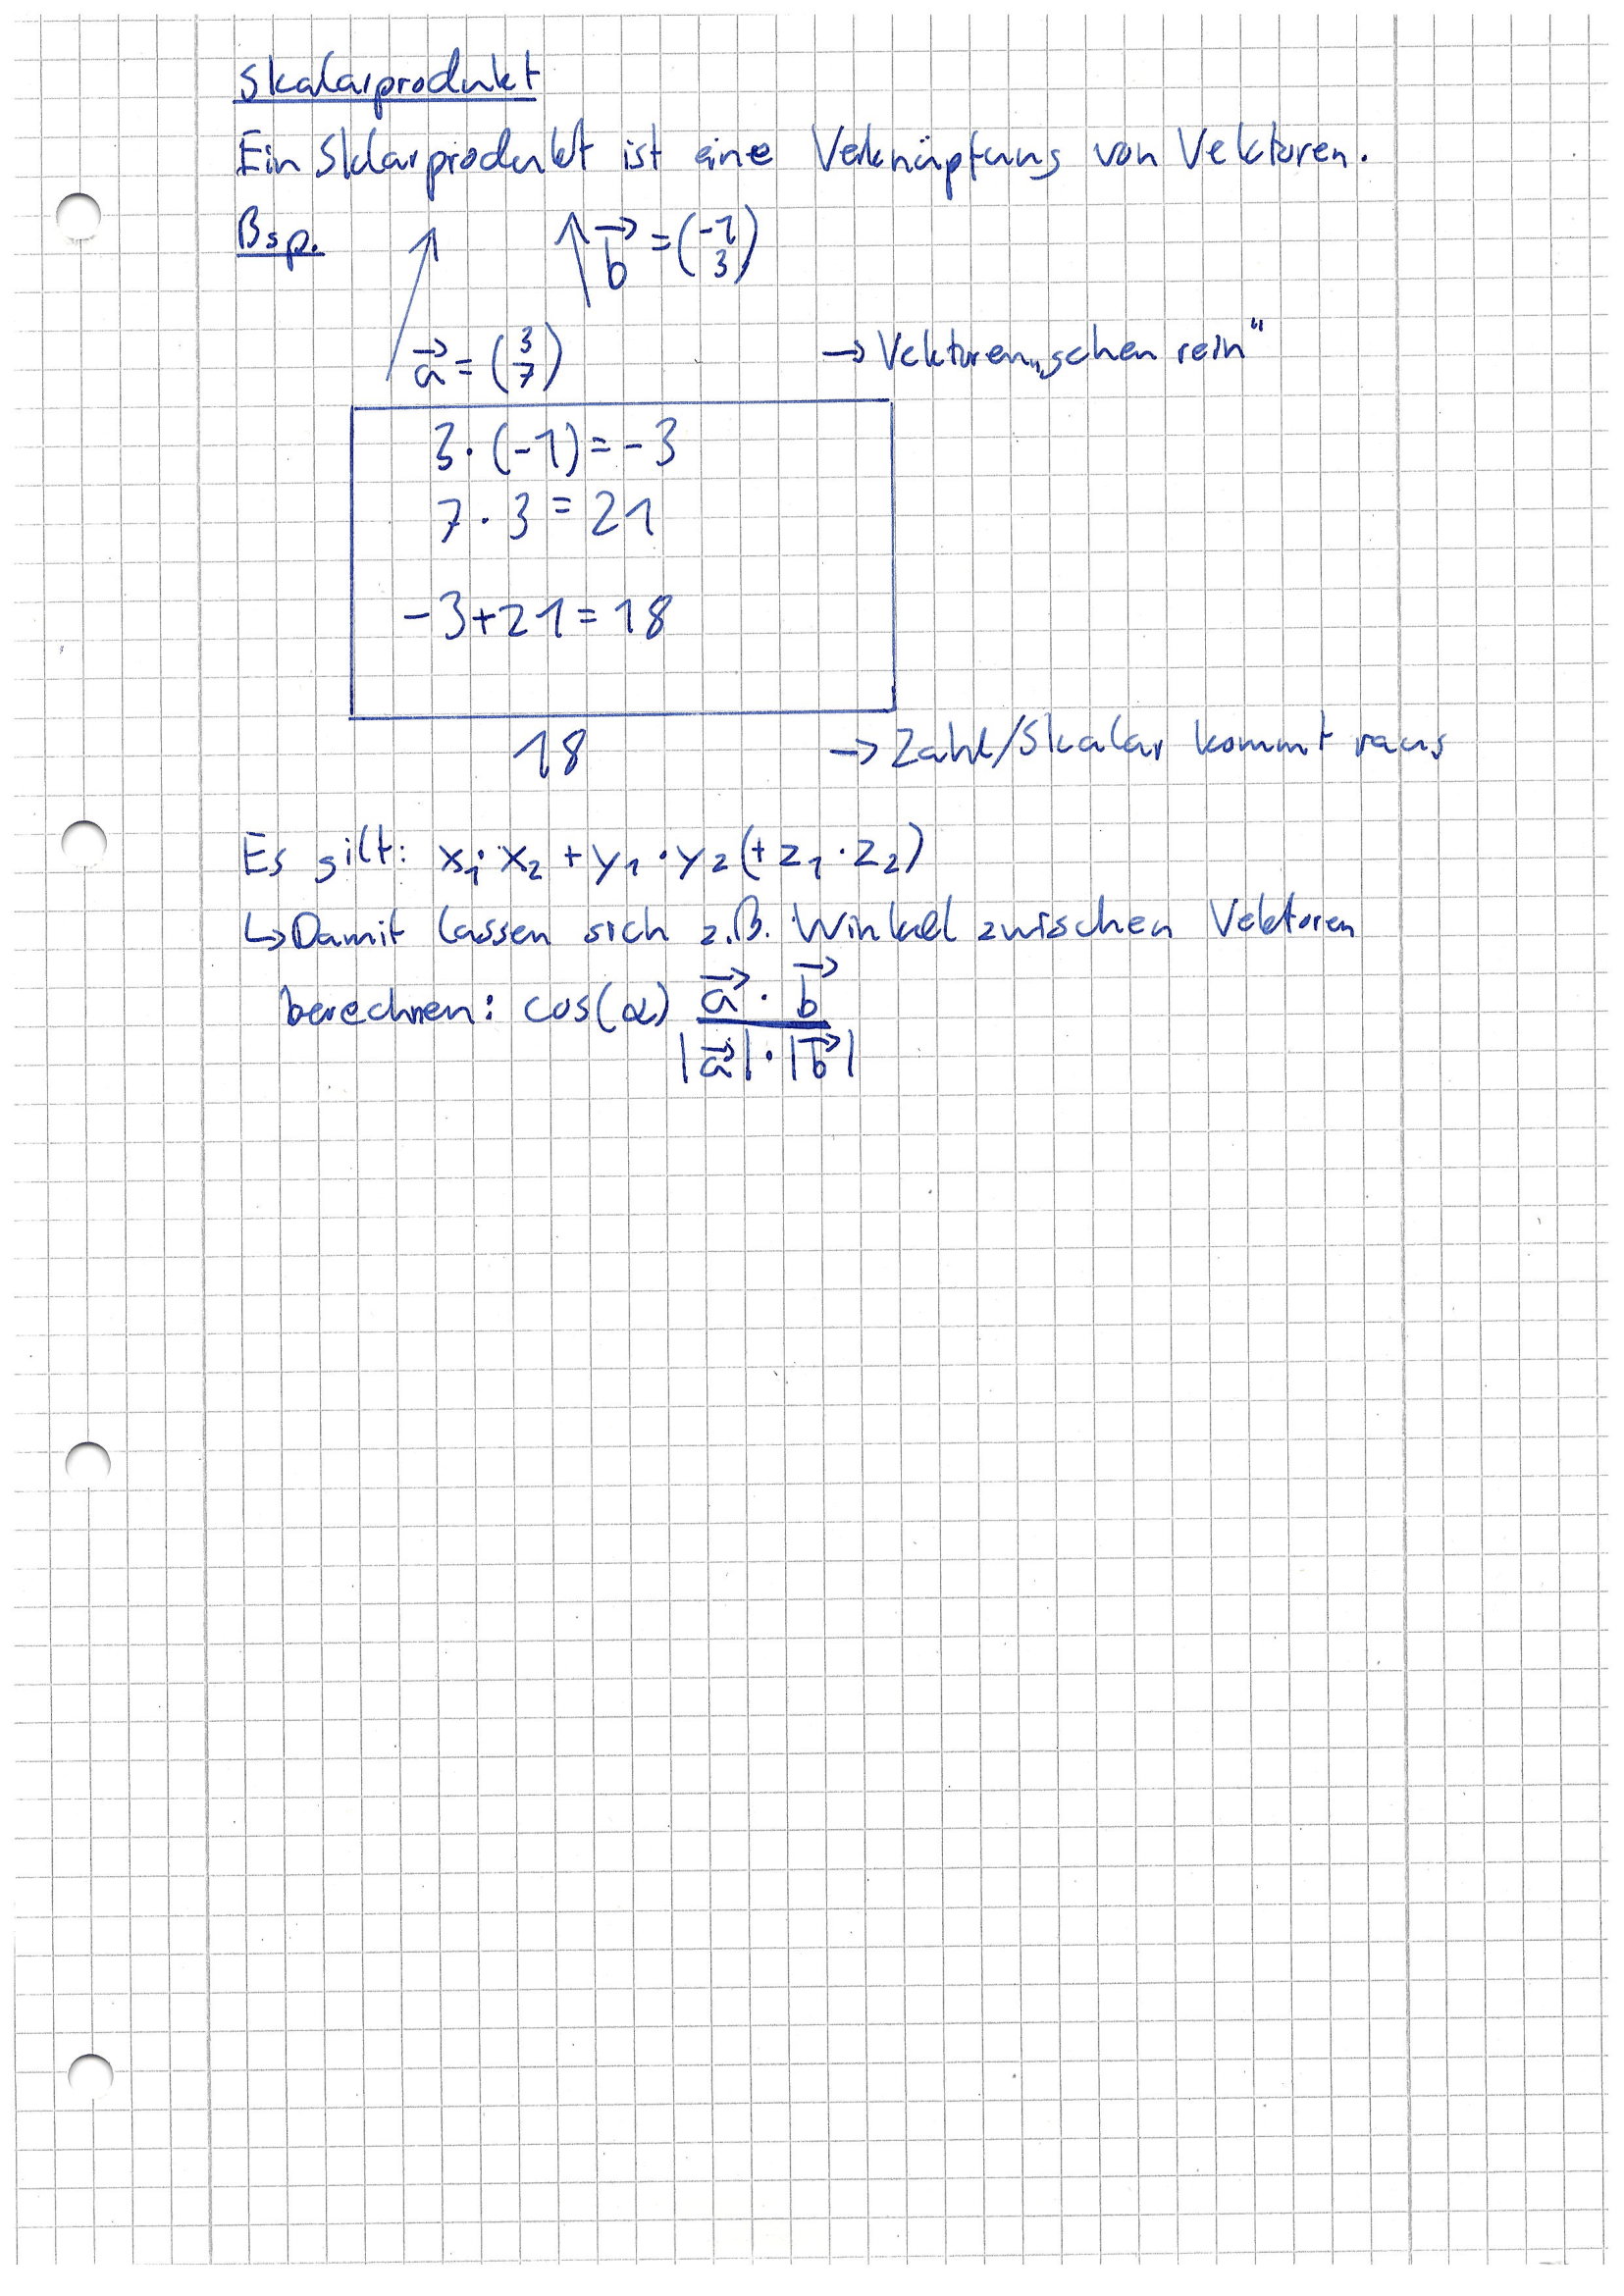 Skalarprodukt
Ein Sklarprodukt ist eine Verknüpfung von Vektoren.
Bsp. b⃗ = (-1 3)
a⃗ = (3 7) → Vektoren „gehen rein“
3 · (-1) = -3
7 · 3 = 21
-3+21=18
18 → Zahl/Skalar kommt raus
Es gilt: x₁ · x₂ + y₁ · y₂ (+ z₁ · z₂)
↳ Damit lassen sich z.B. Winkel zwischen Vektoren
berechnen: cos(α) a⃗ · b⃗
|a⃗| · |b⃗|